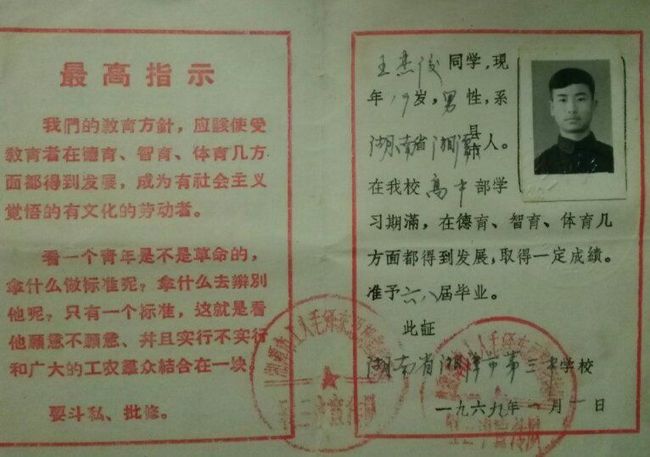 最高指示
我們的教育方針，应該使受
教育者在德育、智育、体育几方
面都得到发展，成为有社会主义
覚悟的有文化的劳动者。
看一个青年是不是革命的，
拿什么做标准呢？拿什么去辨別
他呢？只有一个标准，这就是看
他願意不願意、并且实行不实行
和广大的工农羣众結合在一块。
要斗私、批修。
王杰 同学，現
年19岁，男性，系
湖南省湘潭县市人。
在我校高中部学
习期滿，在德育、智育、体育几
方面都得到发展，取得一定成績。
准予六八届毕业。
此証
湖南省湘潭市第三中学校
一九六九年一月一日
工人毛泽东思想